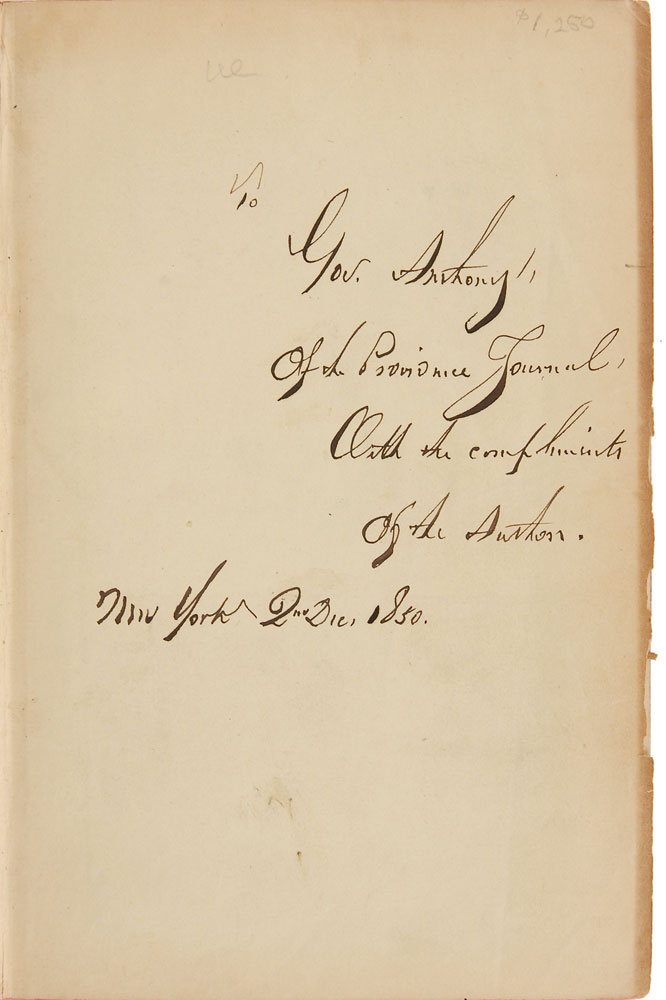 $1,250
To
Gov. Anthony,
Of the Providence Journal,
With the compliments
of the Author.
New York 2nd Dec. 1850.